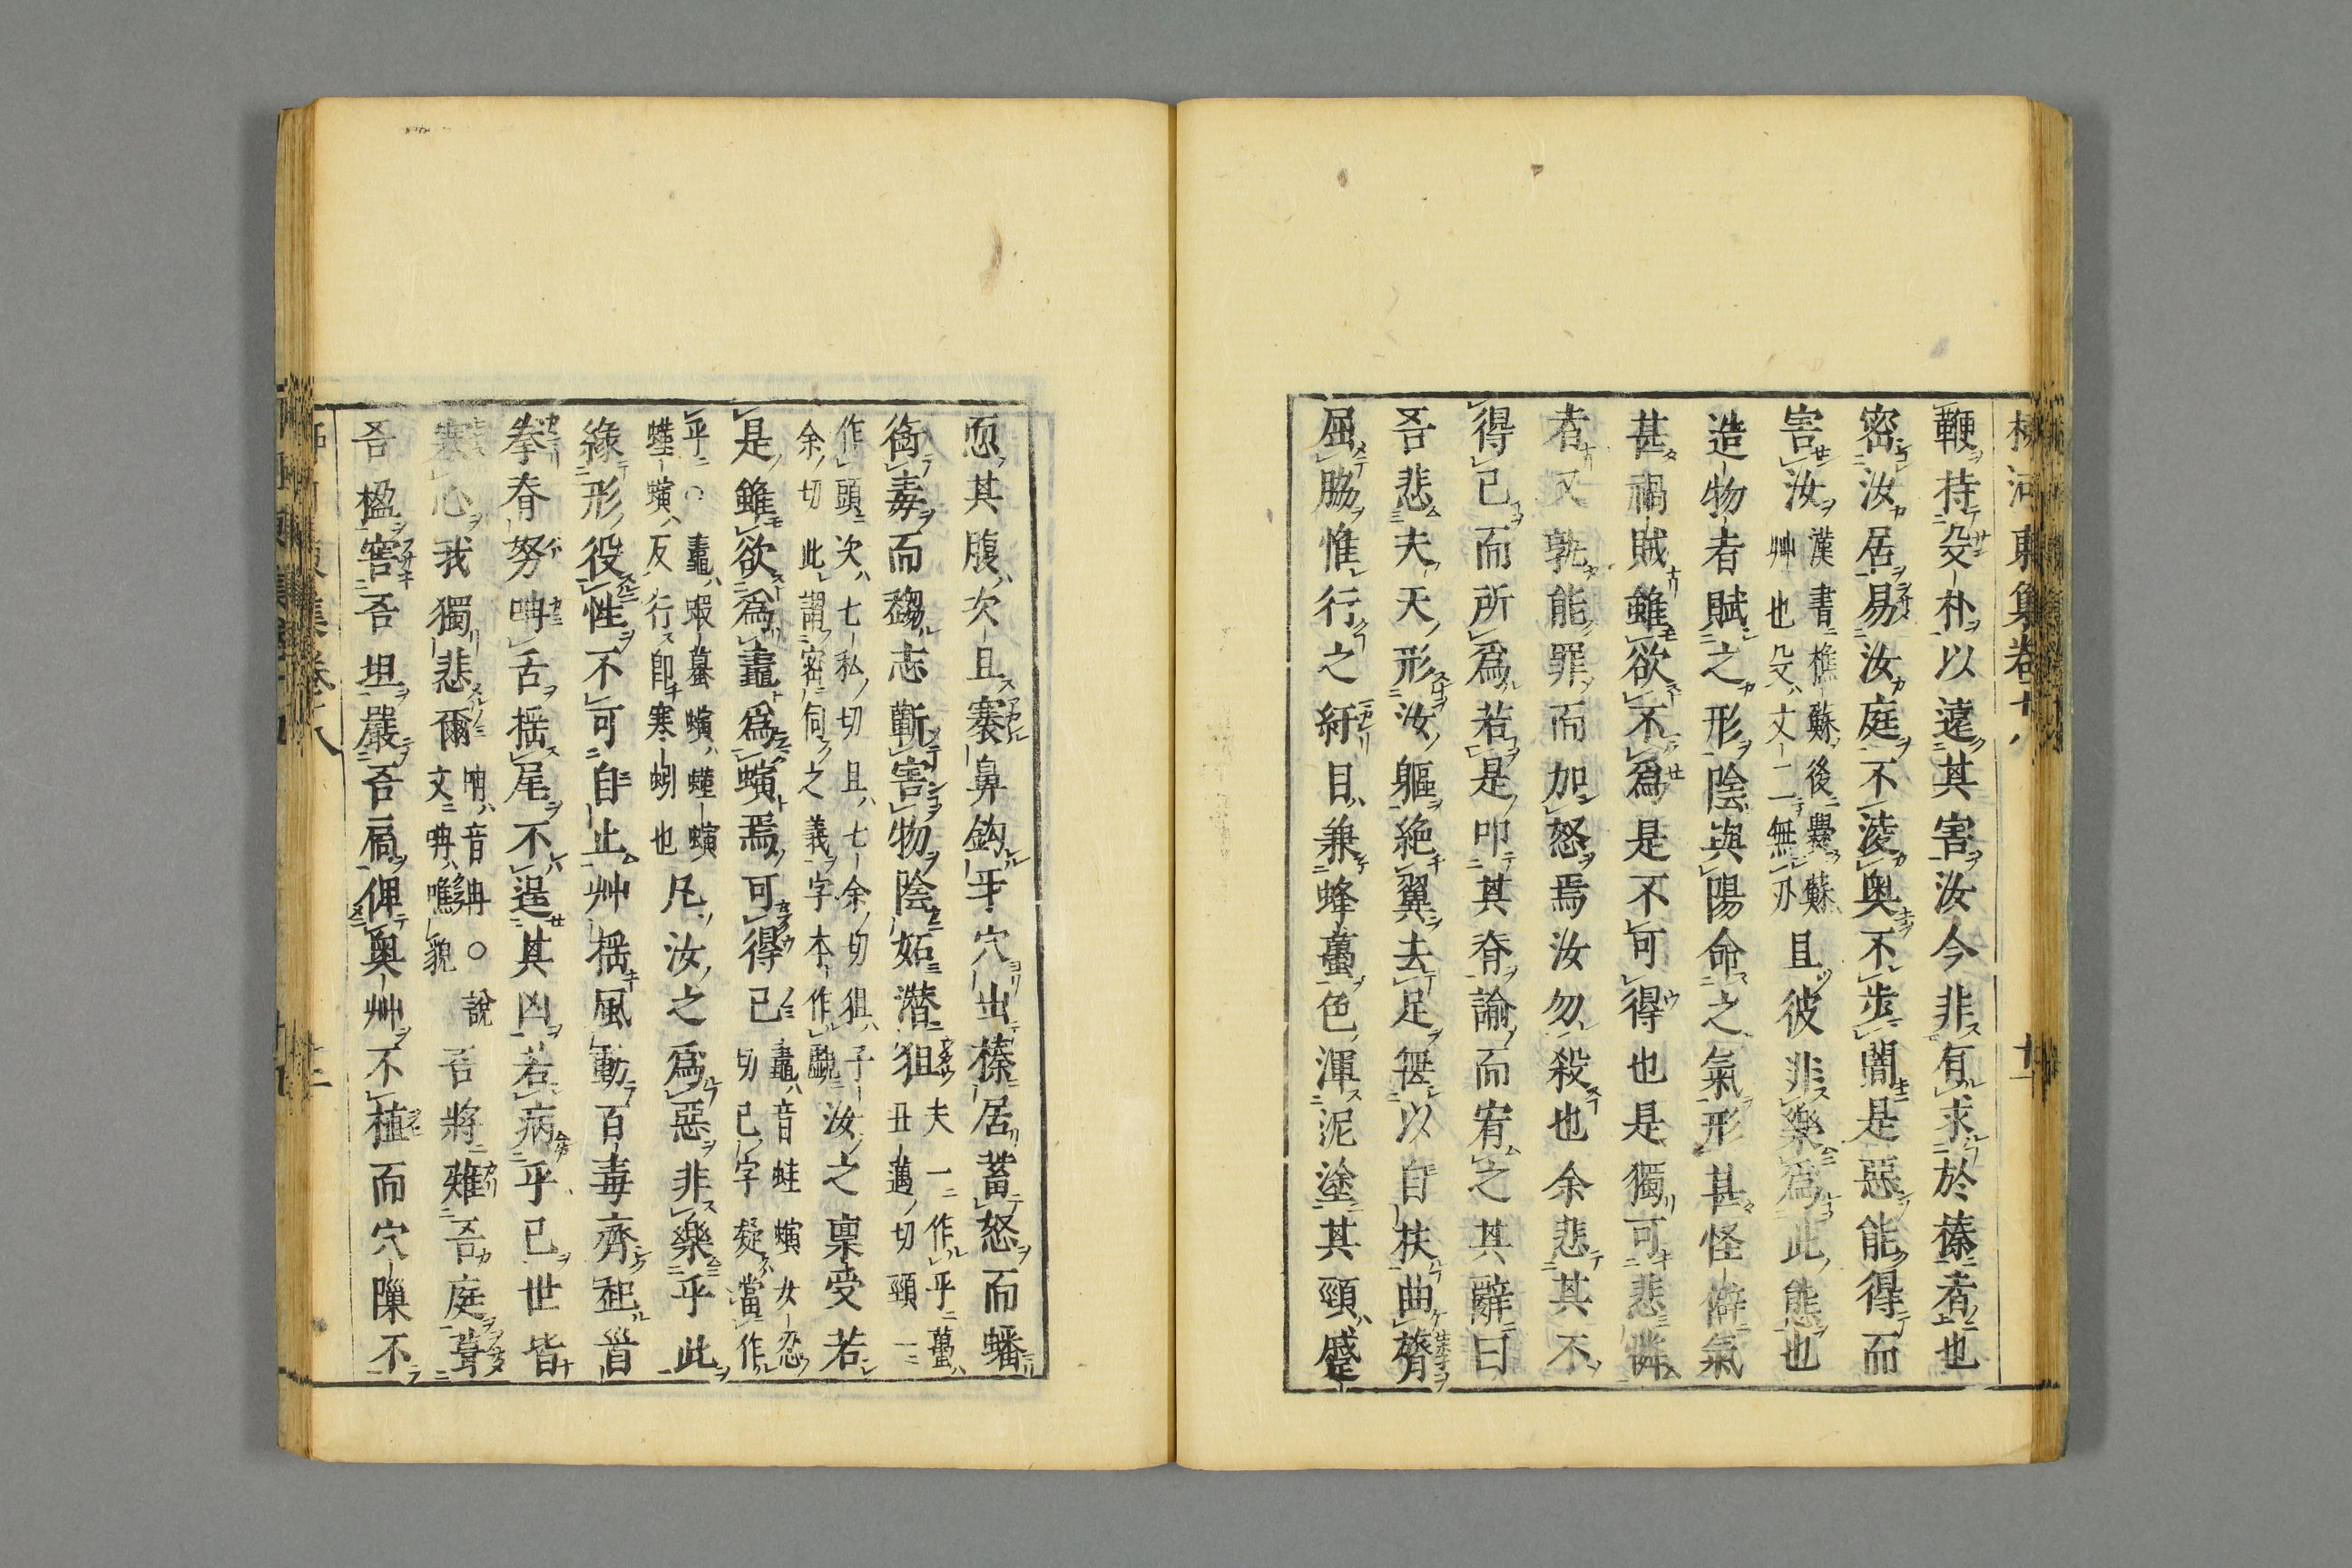 柳河東集卷十八
十一
鞭持殳朴以遠其害汝今非有求於榛者也
密汝居易汝庭不凌奥不步闇是惡能得而
害汝漢書樵蘇後爨蘇艸也殳丈二無刃且彼非樂爲此態也
造物者賦之形陰與陽命之氣形甚怪僻氣
甚禍賊雖欲不爲是不可得也是獨可悲憐
者又孰能罪而加怒焉汝勿殺也余悲其不
得已而所爲若是叩其脊諭而宥之其辭曰
吾悲夫天形汝軀絶翼去足無以自扶曲膂
屈脇惟行之紆目兼蜂蠆色混泥塗其頸蹙
恧其腹次且褰鼻鈎牙穴出榛居蓄怒而蟠
銜毒而趨志蘄害物陰妬潜狙夫一作乎蠆丑邁切頸一
作頭次七私切且七余切狙子余切此謂密伺之義字本作覰汝之稟受若
是雖欲爲鼃爲螾焉可得已鼃音蛙螾女忍切已字疑當作
乎○鼃蝦蟇螾螼螾螼螾反行即寒蚓也凡汝之爲惡非樂乎此
緣形役性不可自止艸揺風動百毒齊起首
拳脊努呥舌揺尾不逞其凶若病乎己世皆
寒心我獨悲爾呥音冉○說文呥噍貌吾將薙吾庭葺
吾楹窖吾垣嚴吾扃俾奥艸不植而穴隟不
柳河東集卷十八
十二